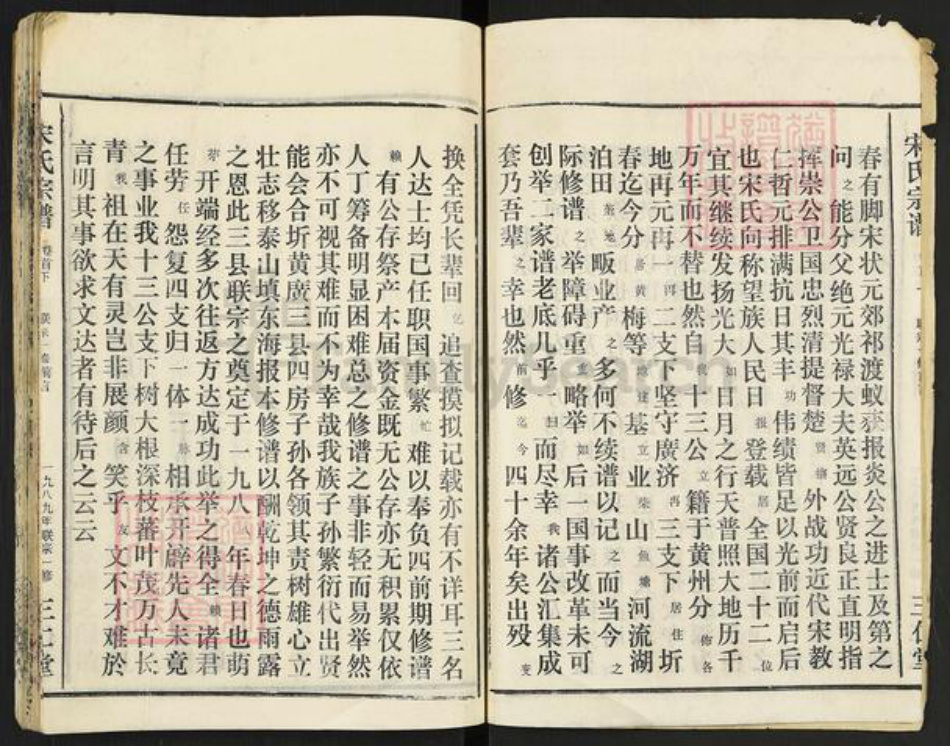 宋氏宗谱
三仁堂
春有脚宋状元郊祁渡蚁获报炎公之进士及第之
问之能分父绝元光禄大夫英远公贤良正直明指
挥崇公卫国忠烈清提督楚贤 外战功近代宋教
仁哲元排满抗日其丰功伟绩皆足以光前而启后
也宋氏向称望族人民日报登载居全国二十二位
宜其继续发扬光大如日月之行天普照大地历千
万年而不替也然自我十三公立籍于黄州分 各
地再元再一 二支下坚守廣济再三支下居住圻
春迄今分居黄梅等 建基立业柴山 河流湖
泊田 地畈业产之多何不续谱以记之而当今之
际修谱之举障碍重重略举如后一国事改革未可
创举二家谱老底几乎一扫而尽幸我诸公汇集成
套乃吾辈之幸也然前修迄今四十余年矣出殁变
换全凭长辈回忆追查摸拟记载亦有不详耳三名
人达士均已任职国事繁忙难以奉负四前期修谱
赖有公存祭产本届资金既无公存亦无积累仅依
人丁筹备明显困难总之修谱之事非轻而易举然
亦不可视其难而不为幸哉我族子孙繁衍代出贤
能会合圻黄廣三县四房子孙各领其责树雄心立
壮志移泰山填东海报本修谱以酬乾坤之德雨露
之恩此三县联宗之奠定于一九八 年春日也萌
芽开端经多次往返方达成功此举之得全赖诸君
任劳任怨复四支归一体一脉相承开辟先人未竟
之事业我十三公支下树大根深枝蕃叶茂万古长
青我祖在天有灵岂非展颜含笑乎友文不才难於
言明其事欲求文达者有待后之云云
宋氏宗谱
卷首下
一九八九年联宗一修
三仁堂